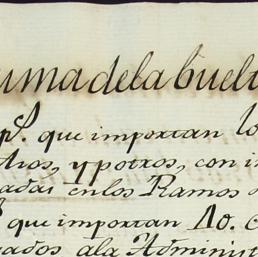 uma de la buelt
pˢ. que importan lo
tros, y potros, con i
adas en los Ramos
que importan 40. c
gados ala Administ